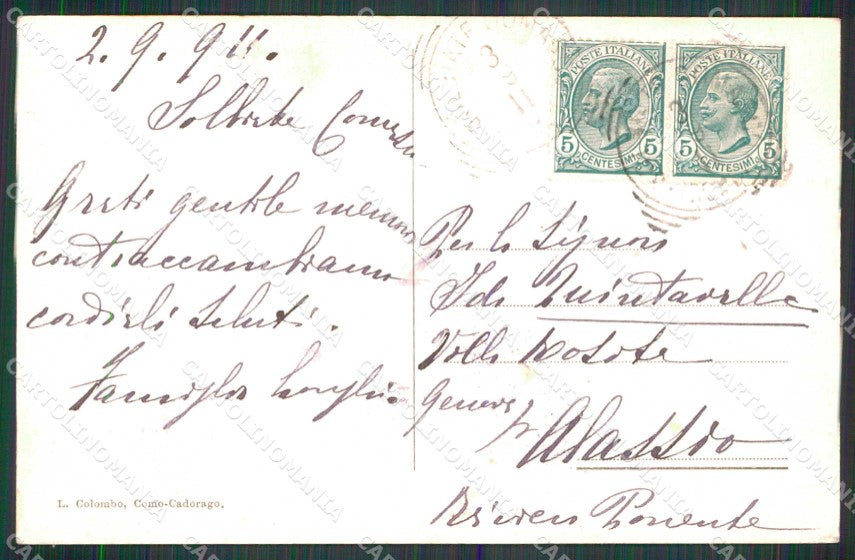 2. 9. 911.
Solbiate Comasco
Grati gentile memoria
contraccambiamo
cordiali saluti.
Famiglia
L. Colombo, Como-Cadorago,
POSTE ITALIANE
5 CENTESIMI 5
POSTE ITALIANE
5 CENTESIMI 5
Per la Signora
Ida Quintavalle
Villa
Genova per Alassio
Riviera Ponente
CARTOLINOMANIA